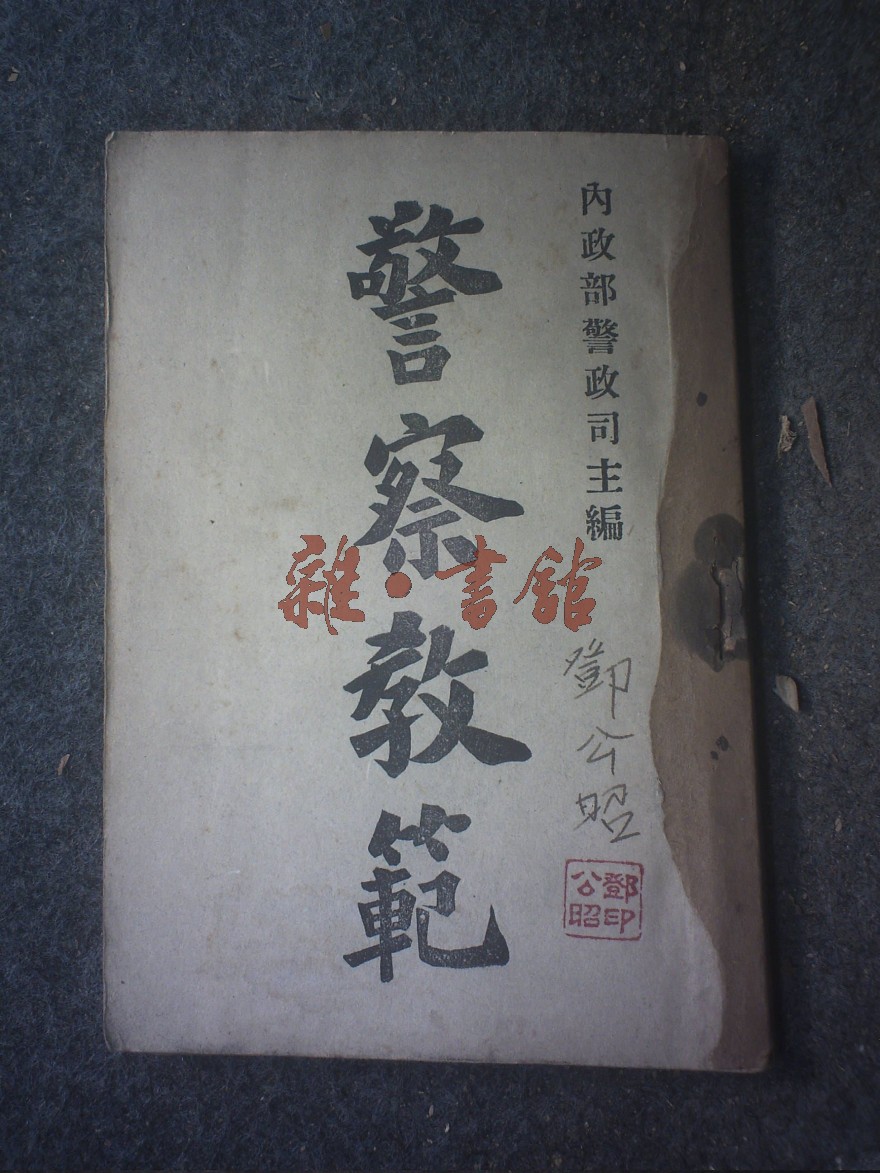 內政部警政司主編
警察教範
鄧公昭
鄧印
公昭
雜·書館